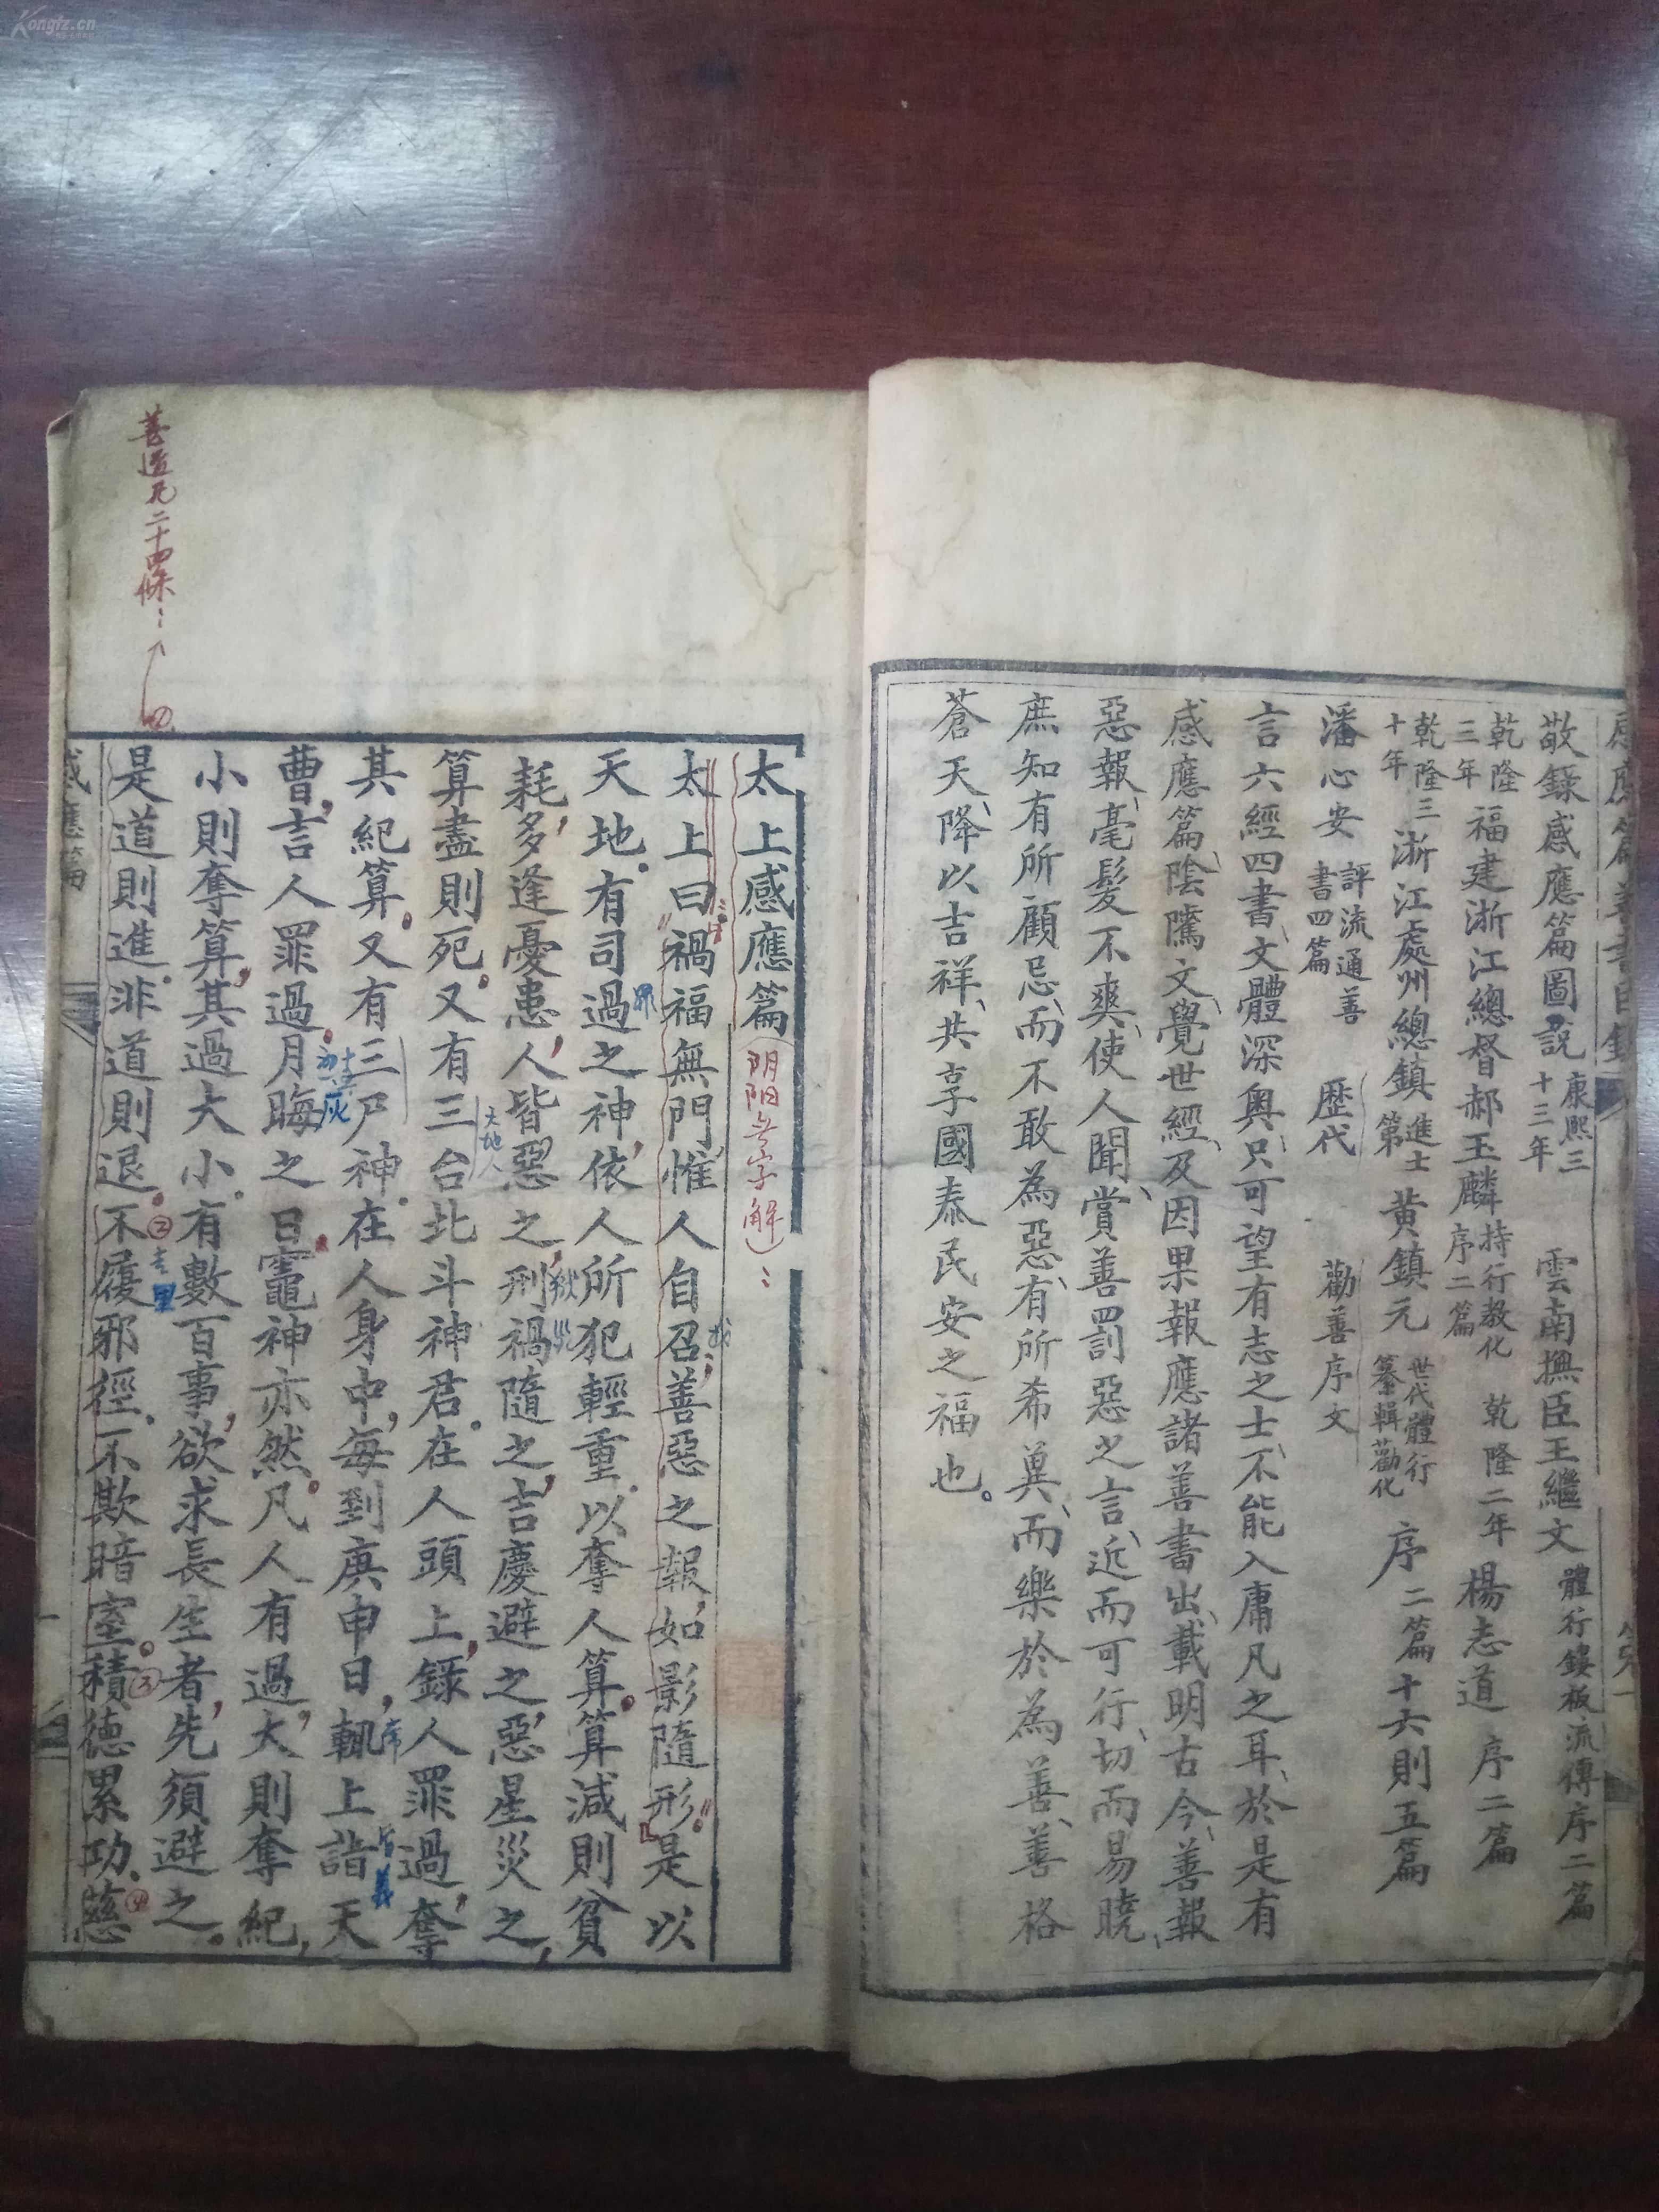 Kongfz.cn
敬錄感應篇圖說 康熙三十三年 雲南撫臣王繼文 體行鏤板流傳序二篇
乾隆三年 福建浙江總督郝玉麟 持行教化序二篇 乾隆二年 楊志道 序二篇
乾隆三十年 浙江處州總鎮 進士第 黃鎮元 世代體行纂輯勸化 序二篇十六則五篇
潘心安 評流通善書四篇 歷代 勸善序文
言六經四書、文體深奧、只可望有志之士、不能入庸凡之耳、於是有
感應篇、陰騭文、覺世經、及因果報應諸善書出、載明古今、善報
惡報、毫髮不爽、使人聞、賞善罰惡之言、近而可行、切而易曉、
庶知有所顧忌、而不敢為惡、有所希兾、而樂於為善、善格
蒼天、降以吉祥、共享國泰民安之福也。
太上感應篇(阴阳
太上曰"禍福無門、惟人自召、善惡之報、如影隨形。"是以
天地。有司過之神、依人所犯輕重。以奪人算。算減則貧
耗,多逢憂患,人皆惡之,刑禍隨之,吉慶避之,惡星災之,
算盡則死。又有三台北斗神君。在人頭上,錄人罪過,奪
其紀算。又有三尸神。在人身中,每到庚申日,輒上詣天
曹,言人罪過。月晦之日竈神亦然。凡人有過,大則奪紀,
小則奪算,其過大小。有數百事,欲求長生者,先須避之。
是道則進。非道則退。不履邪徑。不欺暗室。積德累功、慈
感應篇
一
善道凡二十四條
天地人